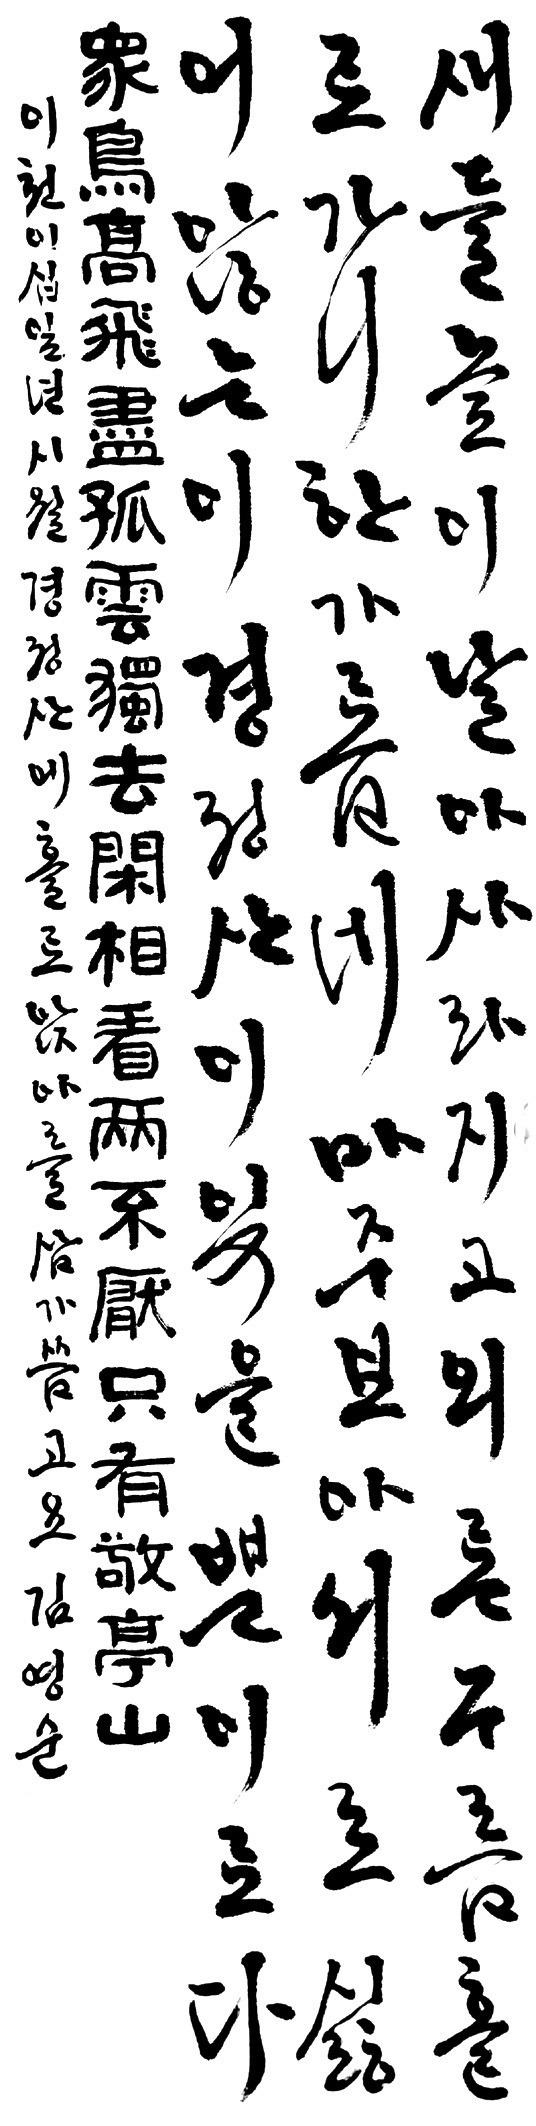 새들높이날아사라지고외론구름홀
로가니한가롭네마주보아서로싫
어않는이경정산이있을뿐이로다
衆鳥高飛盡孤雲獨去閑相看兩不厭只有敬亭山
이천이십일년시월경정산에홀로앉아를삼가씀고요김영순